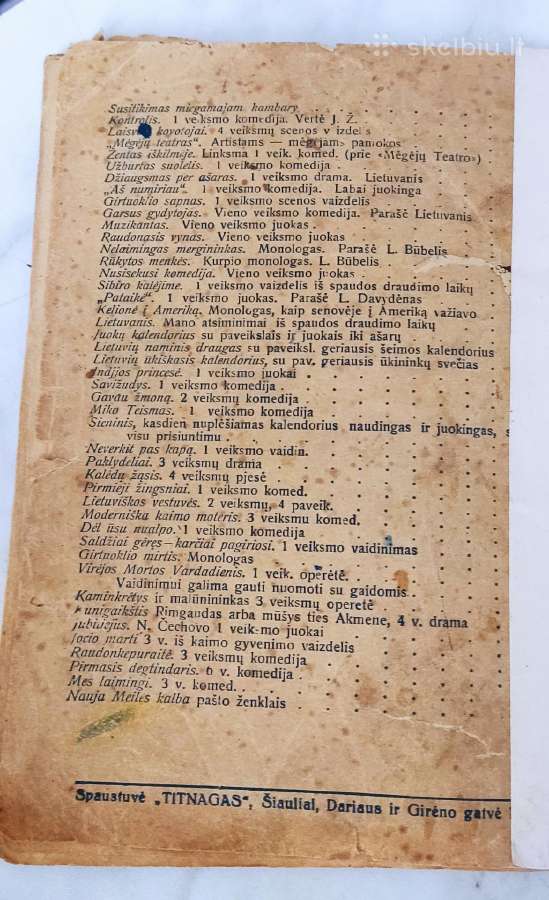 skelbiu.lt
Susitikimas miegamajam kambary
Kontrolis. 1 veiksmo komedija. Vertė J. Ž.
Laisvės kovotojai. 4 veiksmų scenos vaizdelis
„Mėgėjų teatras“. Artistams — mėgėjams pamokos
Žentas iškilmėje. Linksma 1 veik. komed. (prie «Mėgėjų Teatro»)
Užburtas suolelis. 1 veiksmo komedija .
Džiaugsmas per ašaras. 1 veiksmo drama. Lietuvanis
„Aš numiriau“. 1 veiksmo komedija. Labai juokinga
Girtuoklio sapnas. 1 veiksmo scenos vaizdelis
Garsus gydytojas. Vieno veiksmo komedija. Parašė Lietuvanis
Muzikantas. Vieno veiksmo juokas .
Raudonasis vynas. Vieno veiksmo juokas
Nelaimingas mergininkas. Monologas. Parašė L. Būbelis
Rūkytos menkės. Kurpio monologas. L. Būbelis
Nusisekusi komedija. Vieno veiksmo juokas .
Sibiro kalėjime. 1 veiksmo vaizdelis iš spaudos draudimo laikų
„Pataikė“. 1 veiksmo juokas. Parašė L. Davydėnas
Kelionė į Ameriką. Monologas, kaip senovėje į Ameriką važiavo
Lietuvanis. Mano atsiminimai iš spaudos draudimo laikų
Juokų kalendorius su paveikslais ir juokais iki ašarų
Lietuvių naminis draugas su paveiksl. geriausis šeimos kalendorius
Lietuvių ūkiškasis kalendorius, su pav. geriausis ūkininkų svečias
Indijos princesė. 1 veiksmo juokai
Savižudys. 1 veiksmo komedija
Gavau žmoną. 2 veiksmų komedija
Miko Teismas. 1 veiksmo komedija
Sieninis, kasdien nuplėšiamas kalendorius naudingas ir juokingas, s
visu prisiuntimu
Neverkit pas kapą. 1 veiksmo vaidin.
Paklydėliai. 3 veiksmų drama
Kalėdų žąsis. 4 veiksmų pjesė
Pirmieji žingsniai. 1 veiksmo komed.
Lietuviškos vestuvės. 2 veiksmų, 4 paveik.
Moderniška kaimo moteris. 3 veiksmų komed.
Dėl ūsu nualpo. 1 veiksmo komedija
Saldžiai gėręs—karčiai pagiriosi. 1 veiksmo vaidinimas
Girtuoklio mirtis. Monologas
Virėjos Mortos Vardadienis. 1 veik. operėtė.
Vaidinimui galima gauti nuomoti su gaidomis
Kaminkrėtys ir malūnininkas 3 veiksmų operetė
Kunigaikštis Rimgaudas arba mūšys ties Akmene, 4 v. drama
Jubiliejus. N. Čechovo 1 veiksmo juokai
Jocio marti 3 v. iš kaimo gyvenimo vaizdelis
Raudonkepuraitė. 3 veiksmų komedija
Pirmasis degtindaris. 6 v. komedija
Mes laimingi. 3 v. komed.
Nauja Meilės kalba pašto ženklais
Spaustuvė „TITNAGAS“, Šiauliai, Dariaus ir Girėno gatvė